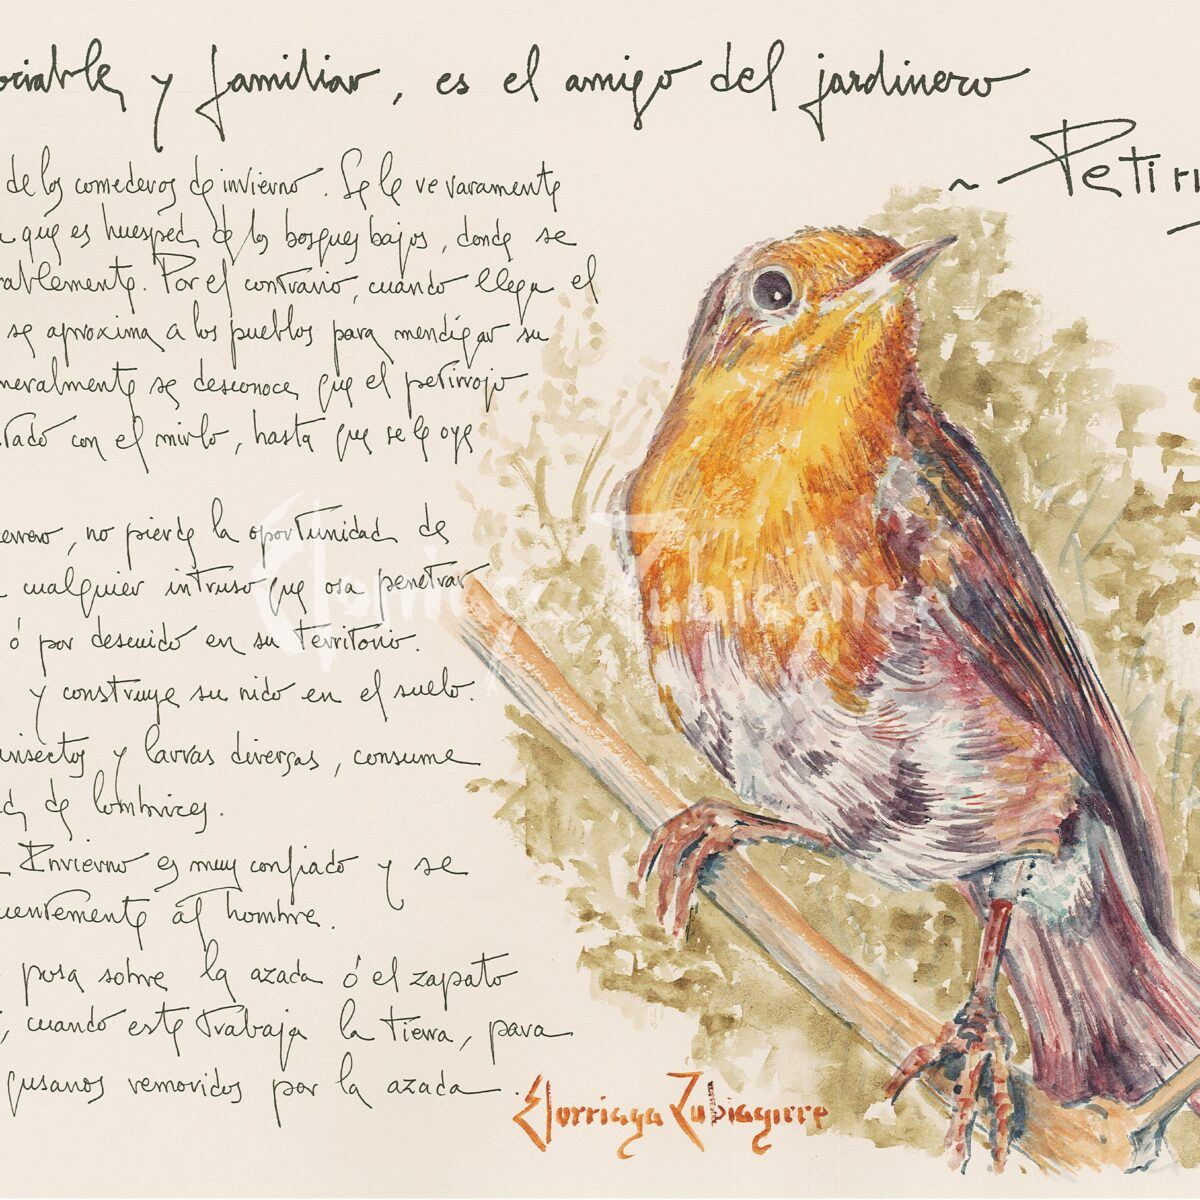 ociable y familiar, es el amigo del jardinero
~ Petirr
de los comederos de invierno. Se le ve raramente
que es huesped de los bosques bajos, donde se
rablemente. Por el contrario, cuando llega el
se aproxima a los pueblos para mendigar su
neralmente se desconoce que el petirrojo
tado con el mirlo, hasta que se le oye
errero, no pierde la oportunidad de
a cualquier intruso que osa penetrar
ó por descuido en su territorio.
y construye su nido en el suelo.
insectos y larvas diversas, consume
d de lombrices.
Invierno es muy confiado y se
cuentemente al hombre.
posa sobre la azada ó el zapato
, cuando este trabaja la tierra, para
gusanos removidos por la azada
Elorriaga Zubiaguirre
Elorriaga Zubiaguirre